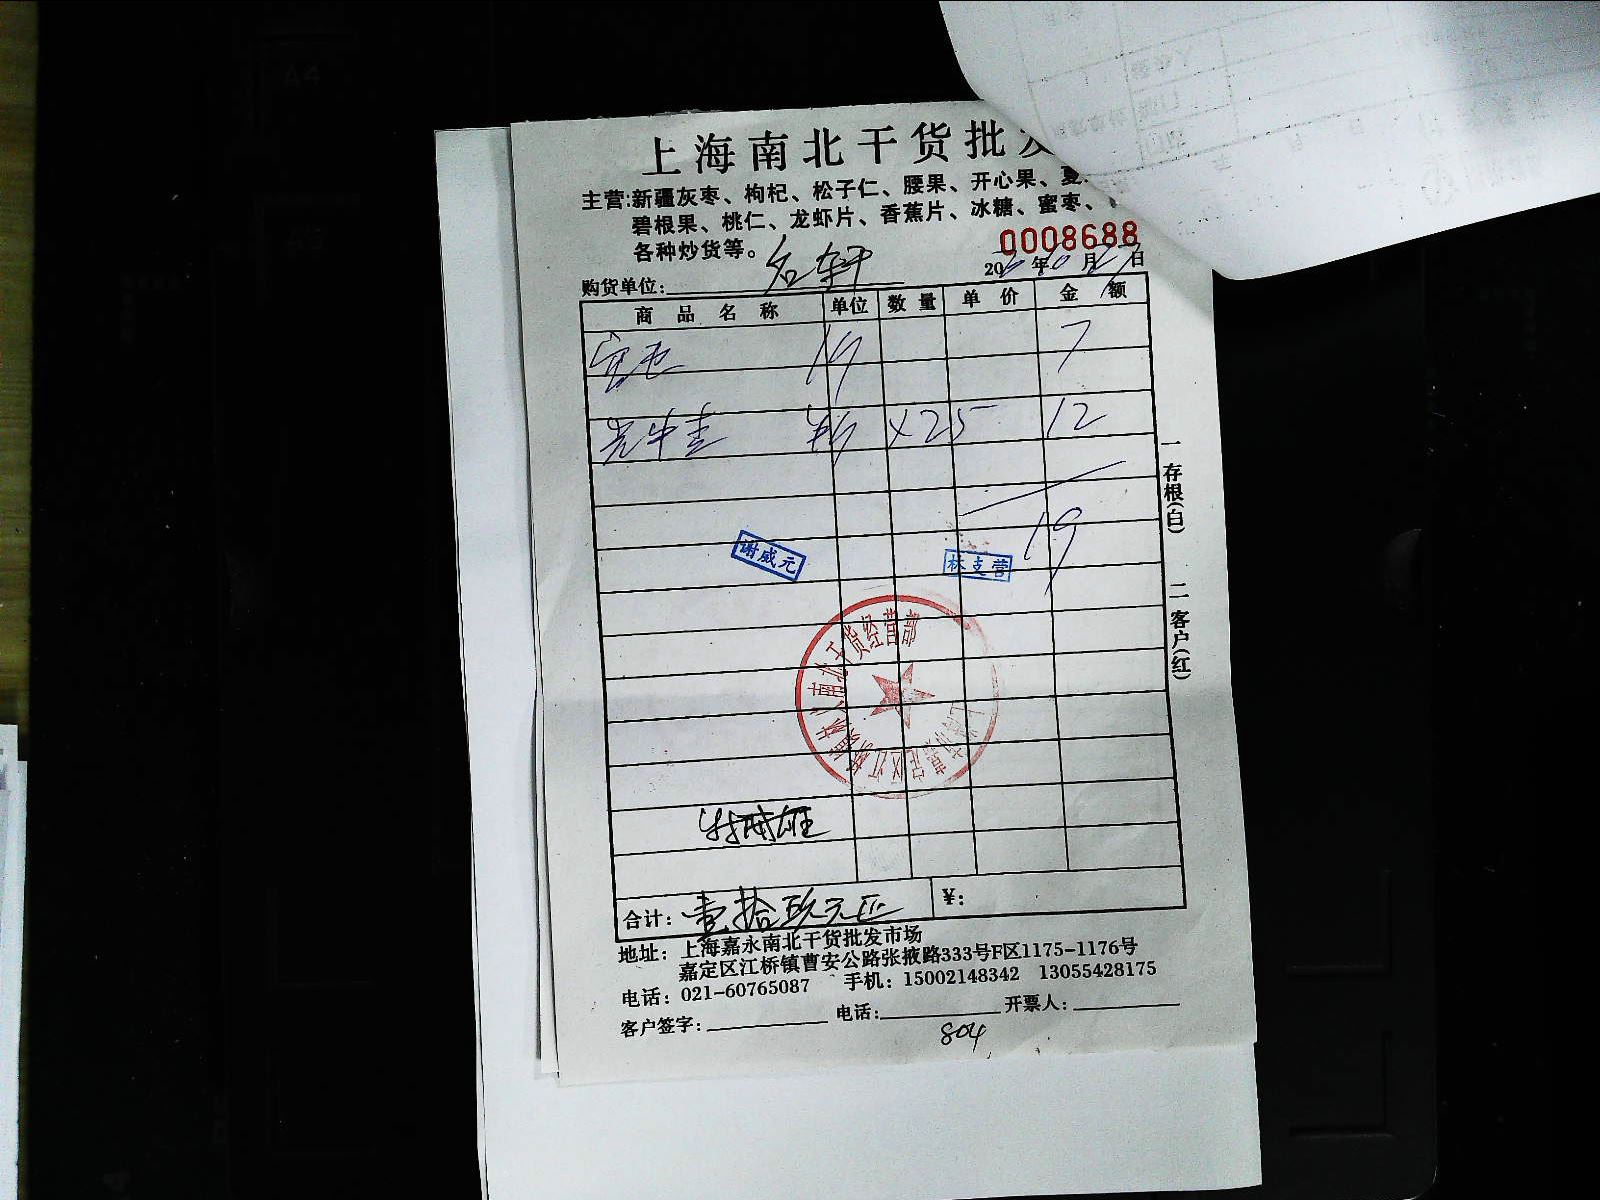 上海南北干货批发
主营:新疆灰枣、枸杞、松子仁、腰果、开心果、夏
碧根果、桃仁、龙虾片、香蕉片、冰糖、蜜枣、
各种炒货等。
0008688
购货单位: 名轩
20 年10月27日
商品名称 单位 数量 单价 金额
7
×25 12
19
谢威元
林支营
南北干货经营部
上海市嘉定区江桥镇
合计: 壹拾玖元正 ¥:
地址: 上海嘉永南北干货批发市场
嘉定区江桥镇曹安公路张掖路333号F区1175-1176号
电话: 021-60765087 手机: 15002148342 13055428175
客户签字: 电话: 开票人:
804
一存根(白)
二客户(红)
A4